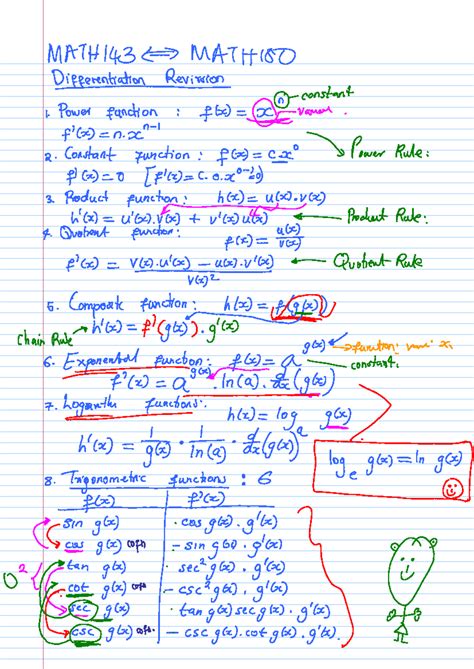 MATH143 ⟺ MATH180
Differentiation Revision
n → constant
1. Power function : f(x) = x^n
f'(x) = n.x^(n-1)
Power Rule:
2. Constant function : f(x) = c.x^0
f'(x) = 0 [f'(x) = c.0.x^(0-1) = 0]
3. Product function : h(x) = u(x).v(x)
h'(x) = u'(x).v(x) + v'(x) u(x) ← Product Rule:
4. Quotient function : f(x) = u(x)/v(x)
f'(x) = (v(x).u'(x) − u(x).v'(x))/v(x)^2 ← Quotient Rule
5. Composite function : h(x) = f(g(x))
Chain Rule → h'(x) = f'(g(x)).g'(x)
6. Exponential function : f(x) = a^g(x)
→ function:
constant.
f'(x) = a^g(x) . ln(a) . d/dx (g(x))
7. Logarithm functions:
h(x) = log_a g(x)
h'(x) = 1/g(x) . 1/ln(a) . d/dx (g(x))
log_e g(x) = ln g(x)
8. Trigonometric functions : 6
f(x) f'(x)
sin g(x) . cos g(x) . g'(x)
cos g(x) − sin g(x) . g'(x)
tan g(x) . sec² g(x) . g'(x)
cot g(x) − csc² g(x) . g'(x)
sec g(x) . tan g(x) sec g(x) . g'(x)
csc g(x) − csc g(x) . cot g(x) . g'(x)